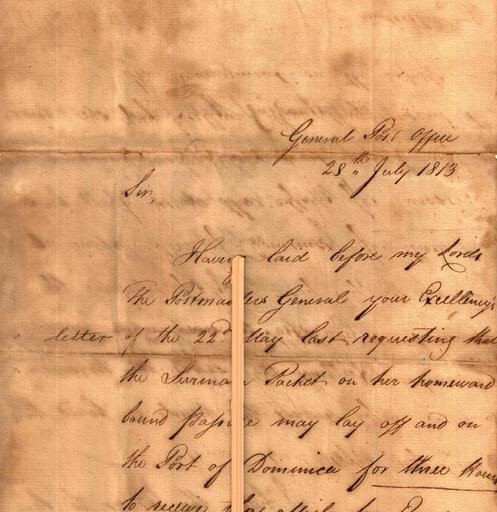 General Post Office
28th July 1813.
Sir,
Having laid before my Lords
The Postmasters General your Excellency's
letter of the 22d May last requesting that
the Surinam Packet on her homeward
bound passage may lay off and on
the Port of Dominica for three hours
to receive